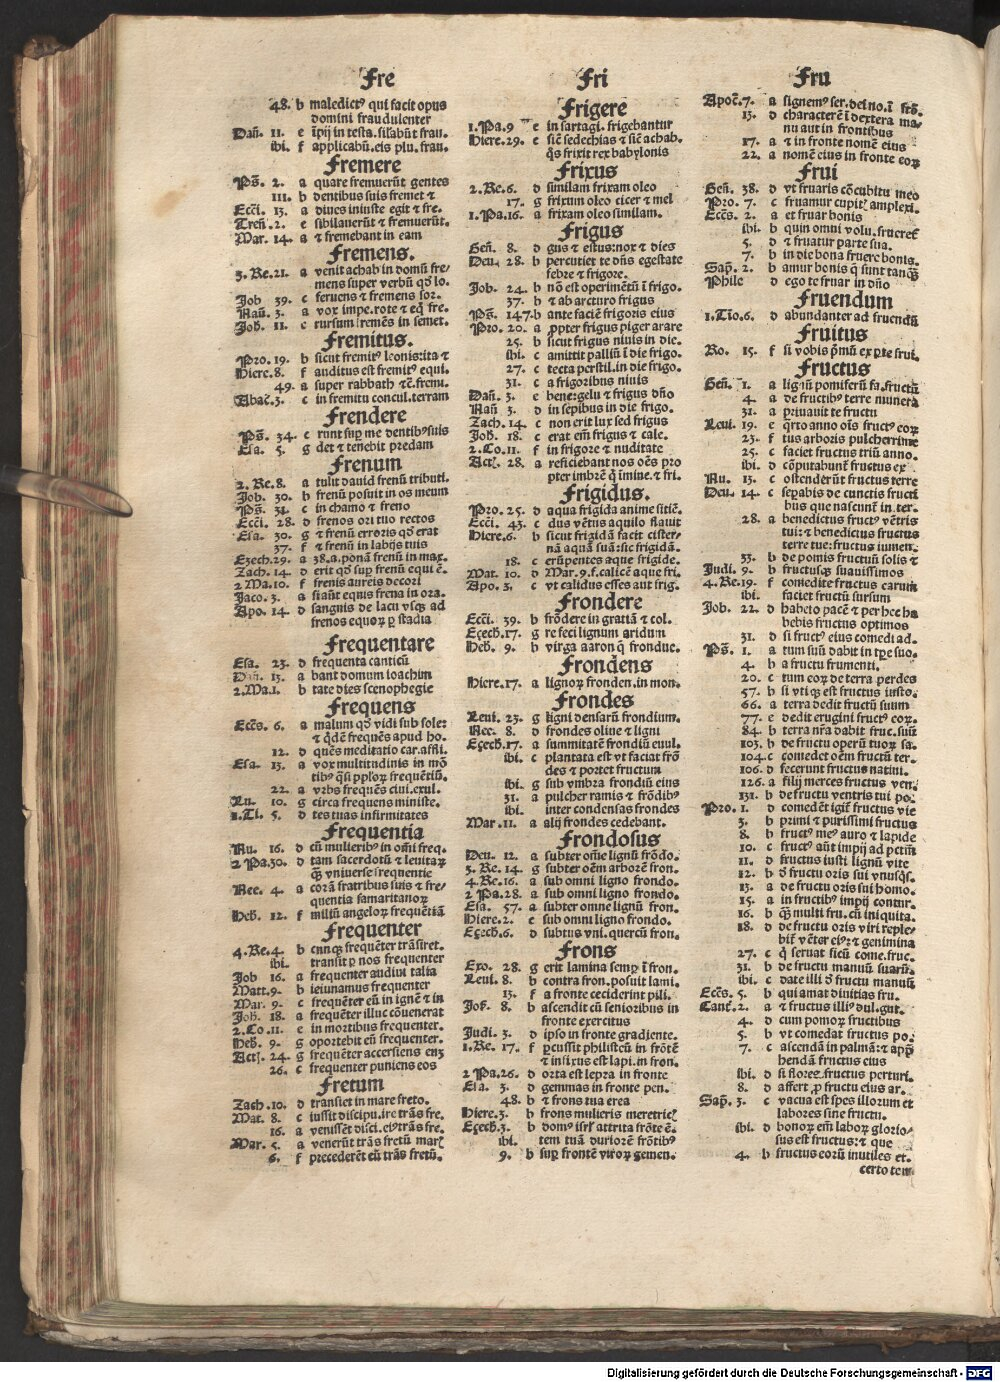 Fre
48. b maledictꝰ qui facit opus
domini fraudulenter
Dañ. 11. e ĩpij in testa. silabũt frau.
ibi. f applicabũ. eis plu. frau.
Fremere
Pŝ. 2. a quare fremuerũt gentes
111. b dentibus suis fremet ⁊
Ecci. 13. a diues iniuste egit ⁊ fre.
Treñ. 2. e sibilauerũt ⁊ fremuerũt.
Mar. 14. a ⁊ fremebant in eam
Fremens.
3. Re. 21. a venit achab in domũ fre/
mens super verbũ qđ lo.
Job 39. c feruens ⁊ fremens sor.
Naũ. 3. a vox impe. rote ⁊ eq̃ fre.
Joh. 11. c rursum fremẽs in semet.
Fremitus.
Pro. 19. b sicut fremitꝰ leonis: ita ⁊
Hiere. 8. f auditus est fremitꝰ equi.
49. a super rabbath ⁊c̃. fremi.
Abac̃. 3. c in fremitu concul. terram
Frendere
Pŝ. 34. c runt suꝑ me dentibꝰ suis
Esa. 5. g det ⁊ tenebit predam
Frenum
2. Re. 8. a tulit dauid frenũ tributi.
Job. 30. b frenũ posuit in os meum
Pŝ. 31. c in chamo ⁊ freno
Ecci. 28. d frenos ori tuo rectos
Esa. 30. g ⁊ frenũ erroris qđ erat
37. f ⁊ frenũ in labijs tuis
Ezech. 29. a 38. a. ponã frenũ in max.
Zach. 14. d erit qđ suꝑ frenũ equi ẽ.
2 Ma. 10. f frenis aureis decori
Jaco. 3. a siaũt equis frena in ora.
Apo. 14. d sanguis de lacu vsqꝫ ad
frenos equoꝝ ꝑ stadia
Frequentare
Esa. 23. d frequenta canticũ
Dañ. 13. a bant domum ioachim
2. Ma. 1. b tate dies scenophegie
Frequens
Ecc̃s. 6. a malum qđ vidi sub sole:
⁊ q̃dẽ frequẽs apud ho.
12. d quẽs meditatio car. affli.
Esa. 13. a vox multitudinis in mõ
tibꝰ q̃si pploꝝ frequẽtiũ.
22. a vrbs frequẽs ciui. exul.
Lu. 10. g circa frequens ministe.
1. Ti. 5. d tes tuas infirmitates
Frequentia
Nu. 16. d cũ mulieribꝰ in om̃i freq.
2 Pa. 30. d tam sacerdotũ ⁊ leuitaꝝ
q̃ꝫ vniuerse frequentie
Nee. 4. a corã fratribus suis ⁊ fre/
quentia samaritanoꝝ
Heb̃. 12. f miliũ angeloꝝ frequẽtiã
Frequenter
4. Re. 4. b cunqꝫ frequẽter trãsiret.
ibi. transit ꝑ nos frequenter
Job 16. a frequenter audiui talia
Matt. 9. b ieiunamus frequenter
Mar. 9. c frequẽter eũ in ignẽ ⁊ in
Joh. 18. a frequẽter illuc cõuenerat
2. Co. 11. e in mortibus frequenter.
Heb̃. 9. g oportebit eũ frequenter.
Act. 24. g frequẽter accersiens eũ
26. c frequenter puniens eos
Fretum
Zach. 10. d transiet in mare freto.
Mat. 8. c iussit discipu. ire trãs fre.
16. a venissẽt disci. eiꝰ trãs fre.
Mar. 5. a venerũt trãs fretũ mar.
6. f precederẽt eũ trãs fretũ.
Fri
Frigere
1. Pa. 9 e in sartagi. frigebantur
Hiere. 29. e sic̃ sedechias ⁊ sic̃ achab.
q̃s frixit rex babylonis
Frixus
2. Re. 6. d similam frixam oleo
17. g frixum oleo cicer ⁊ mel
1. Pa. 16. a frixam oleo similam.
Frigus
Geñ. 8. d gus ⁊ estus: nox ⁊ dies
Deu. 28. b percutiet te dñs egestate
febre ⁊ frigore.
Job. 24. b nõ est operimẽtũ ĩ frigo.
37. b ⁊ ab arcturo frigus
Pŝ. 147. b ante faciẽ frigoris eius
Pro. 20. a ꝓpter frigus piger arare
25. b sicut frigus niuis in die.
ibi. c amittit palliũ ĩ die frigo.
27. c tecta perstil. in die frigo.
31. c a frigoribus niuis
Dañ. 3. e bene: gelu ⁊ frigus dño
Naũ 3. d in sepibus in die frigo.
Zach. 14. c non erit lux sed frigus
Joh. 18. c erat em̃ frigus ⁊ cale.
2. Co. 11. f in frigore ⁊ nuditate
Act. 28. a reficiebant nos oẽs pro
pter imbrẽ q̃ ĩmine. ⁊ fri.
Frigidus.
Pro. 25. d aqua frigida anime sitiẽ.
Ecci. 43. c dus vẽtus aquilo flauit
Hiere. 6. b sicut frigidã facit cister/
nã aquã suã: sic frigidã.
18. c erũpentes aque frigide.
Mat. 10. d Mar. 9. f. calicẽ aque fri.
Apo. 3. c vt calidus esses aut frig.
Frondere
Ecci. 39. b frõdere in gratiã ⁊ col.
Ezech. 17. g re feci lignum aridum
Heb̃. 9. b virga aaron q̃ frondue.
Frondens
Hiere. 17. a lignoꝝ fronden. in mon.
Frondes
Leui. 23. g ligni densarũ frondium.
Nee. 8. d frondes oliue ⁊ ligni
Ezech. 17. a summitatẽ frondiũ euul.
ibi. c plantata est vt faciat frõ
des ⁊ portet fructum
ibi. g sub vmbra frondiũ eius
31. a pulcher ramis ⁊ frõdibꝰ
ibi. inter condensas frondes
Mar. 11. a alij frondes cedebant.
Frondosus
Deu. 12. a subter om̃e lignũ frõdo.
3. Re. 14. g subter oẽm arborẽ fron.
4. Re. 16. a sub omni ligno frondo.
2 Pa. 28. a sub omni ligno frondo.
Esa. 57. a subter omne lignũ fron.
Hiere. 2. e sub omni ligno frondo.
Ezech. 6. d subtus vni. quercũ fron.
Frons
Exo. 28. g erit lamina semꝑ ĩ fron.
Leui. 8. b contra fron. posuit lami.
13. f a fronte ceciderint pili.
Jos̃. 8. b ascendit cũ senioribus in
fronte exercitus
Judi. 3. d ipso in fronte gradiente.
1. Re. 17. f ꝑcussit philistẽũ in frõtẽ
⁊ infixus est lapi. in fron.
2 Pa. 26. d orta est lepra in fronte
Esa. 3. d gemmas in fronte pen.
48. b ⁊ frons tua erea
Hiere. 3. b frons mulieris meretric̃
Ezech. 3. b domꝰ isrl̃ attrita frõte ẽ.
ibi. tem tuã duriorẽ frõtibꝰ
9. b suꝑ frontẽ viroꝝ gemen.
Fru
Apoc̃. 7. a signemꝰ ser. dei no. ĩ frõ.
13. d characterẽ ĩ dextera ma/
nu aut in frontibus
17. a ⁊ in fronte nomẽ eius
22. a nomẽ eius in fronte eoꝝ
Frui
Geñ. 38. d vt fruaris cõcubitu meo
Pro. 7. c fruamur cupit. amplexi.
Ecc̃s. 2. a et fruar bonis
ibi. b quin omni volu. frueret̃
5. d ⁊ fruatur parte sua.
7. b in die bona fruere bonis.
Sap̃. 2. b amur bonis q̃ sunt tanq̃ꝫ
Phile d ego te fruar in dño
Fruendum
1. Tĩo. 6. d abundanter ad fruendũ
Fruitus
Ro. 15. f si vobis p̃mũ ex ꝑte frui.
Fructus
Geñ. 1. a lignũ pomiferũ fa. fructũ
4. a de fructibꝰ terre munera
31. a priuauit te fructu
Leui. 19. e q̃rto anno oĩs fructꝰ eoꝝ
23. f tus arboris pulcherrime
25. c faciet fructus triũ anno.
ibi. d cõputabunt̃ fructus ex
Nu. 13. c ostenderũt fructus terre
Deu. 14. c seꝑabis de cunctis fructi
bus que nascunt̃ in ter.
28. a benedictus fructꝰ vẽtris
tui: ⁊ benedictus fructus
terre tue: fructus iumen.
33. b de pomis fructuũ solis ⁊
Judi. 9. b fructusqꝫ suauissimos
4. Re. 19. f comedite fructus earum
ibi. faciet fructũ sursum
Job. 22. d habeto pacẽ ⁊ per hec ha
bebis fructus optimos
31. d si fructꝰ eius comedi ad.
Pŝ. 1. a tum suũ dabit in tꝑe suo.
4. b a fructu frumenti.
20. c tum eoꝝ de terra perdes
57. b si vtiqꝫ est fructus iusto.
66. a terra dedit fructũ suum
77. e dedit erugini fructꝰ eoꝝ.
84. b terra nr̃a dabit fruc. suũ
103. b de fructu operũ tuoꝝ sa.
104. c comedet oẽm fructũ ter.
106. d fecerunt fructus natiui.
126. a filij merces fructus ven.
131. b de fructu ventris tui po.
Pro. 1. d comedẽt igit̃ fructus vie
3. b primi ⁊ purissimi fructus
8. b fructꝰ meꝰ auro ⁊ lapide
10. c fructꝰ aũt impij ad pctm̃
11. d fructus iusti lignũ vite
12. b đ fructu oris sui vnusqꝫ.
13. a de fructu oris sui homo.
15. a in fructibꝰ impij contur.
16. b q̃ꝫ multi fru. cũ iniquita.
18. d de fructu oris viri reple/
bit̃ vẽter eiꝰ: ⁊ genimina
27. c q̃ seruat ficũ come. fruc.
31. b de fructu manuũ suarũ.
ibi. c date illi đ fructu manuũ
Ecc̃s. 5. b qui amat diuitias fru.
Cant̃. 2. a ⁊ fructus illiꝰ dul. gut.
4. d cum pomoꝝ fructibus
5. b vt comedat fructus po.
7. c ascendã in palmã: ⁊ app̃
hendã fructus eius
ibi. d si flores fructus perturi.
8. d affert ꝓ fructu eius ar.
Sap̃. 3. c vacua est spes illorum et
labores sine fructu.
ibi. d bonoꝝ em̃ laboꝝ glorio/
sus est fructus: ⁊ que
4. b fructus eorũ inutiles et.
certo tem
Digitalisierung gefördert durch die Deutsche Forschungsgemeinschaft - DFG